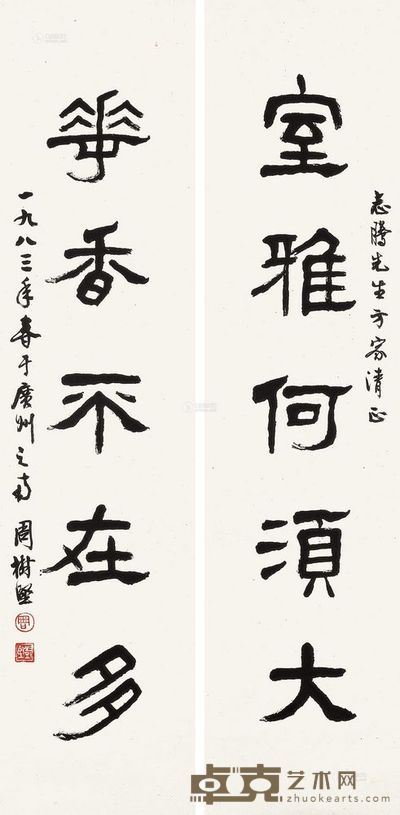 志騰先生方家清正
室雅何須大
華香不在多
一九八三年春于廣州之南 周樹堅
卓克艺术网
zhuokearts.com